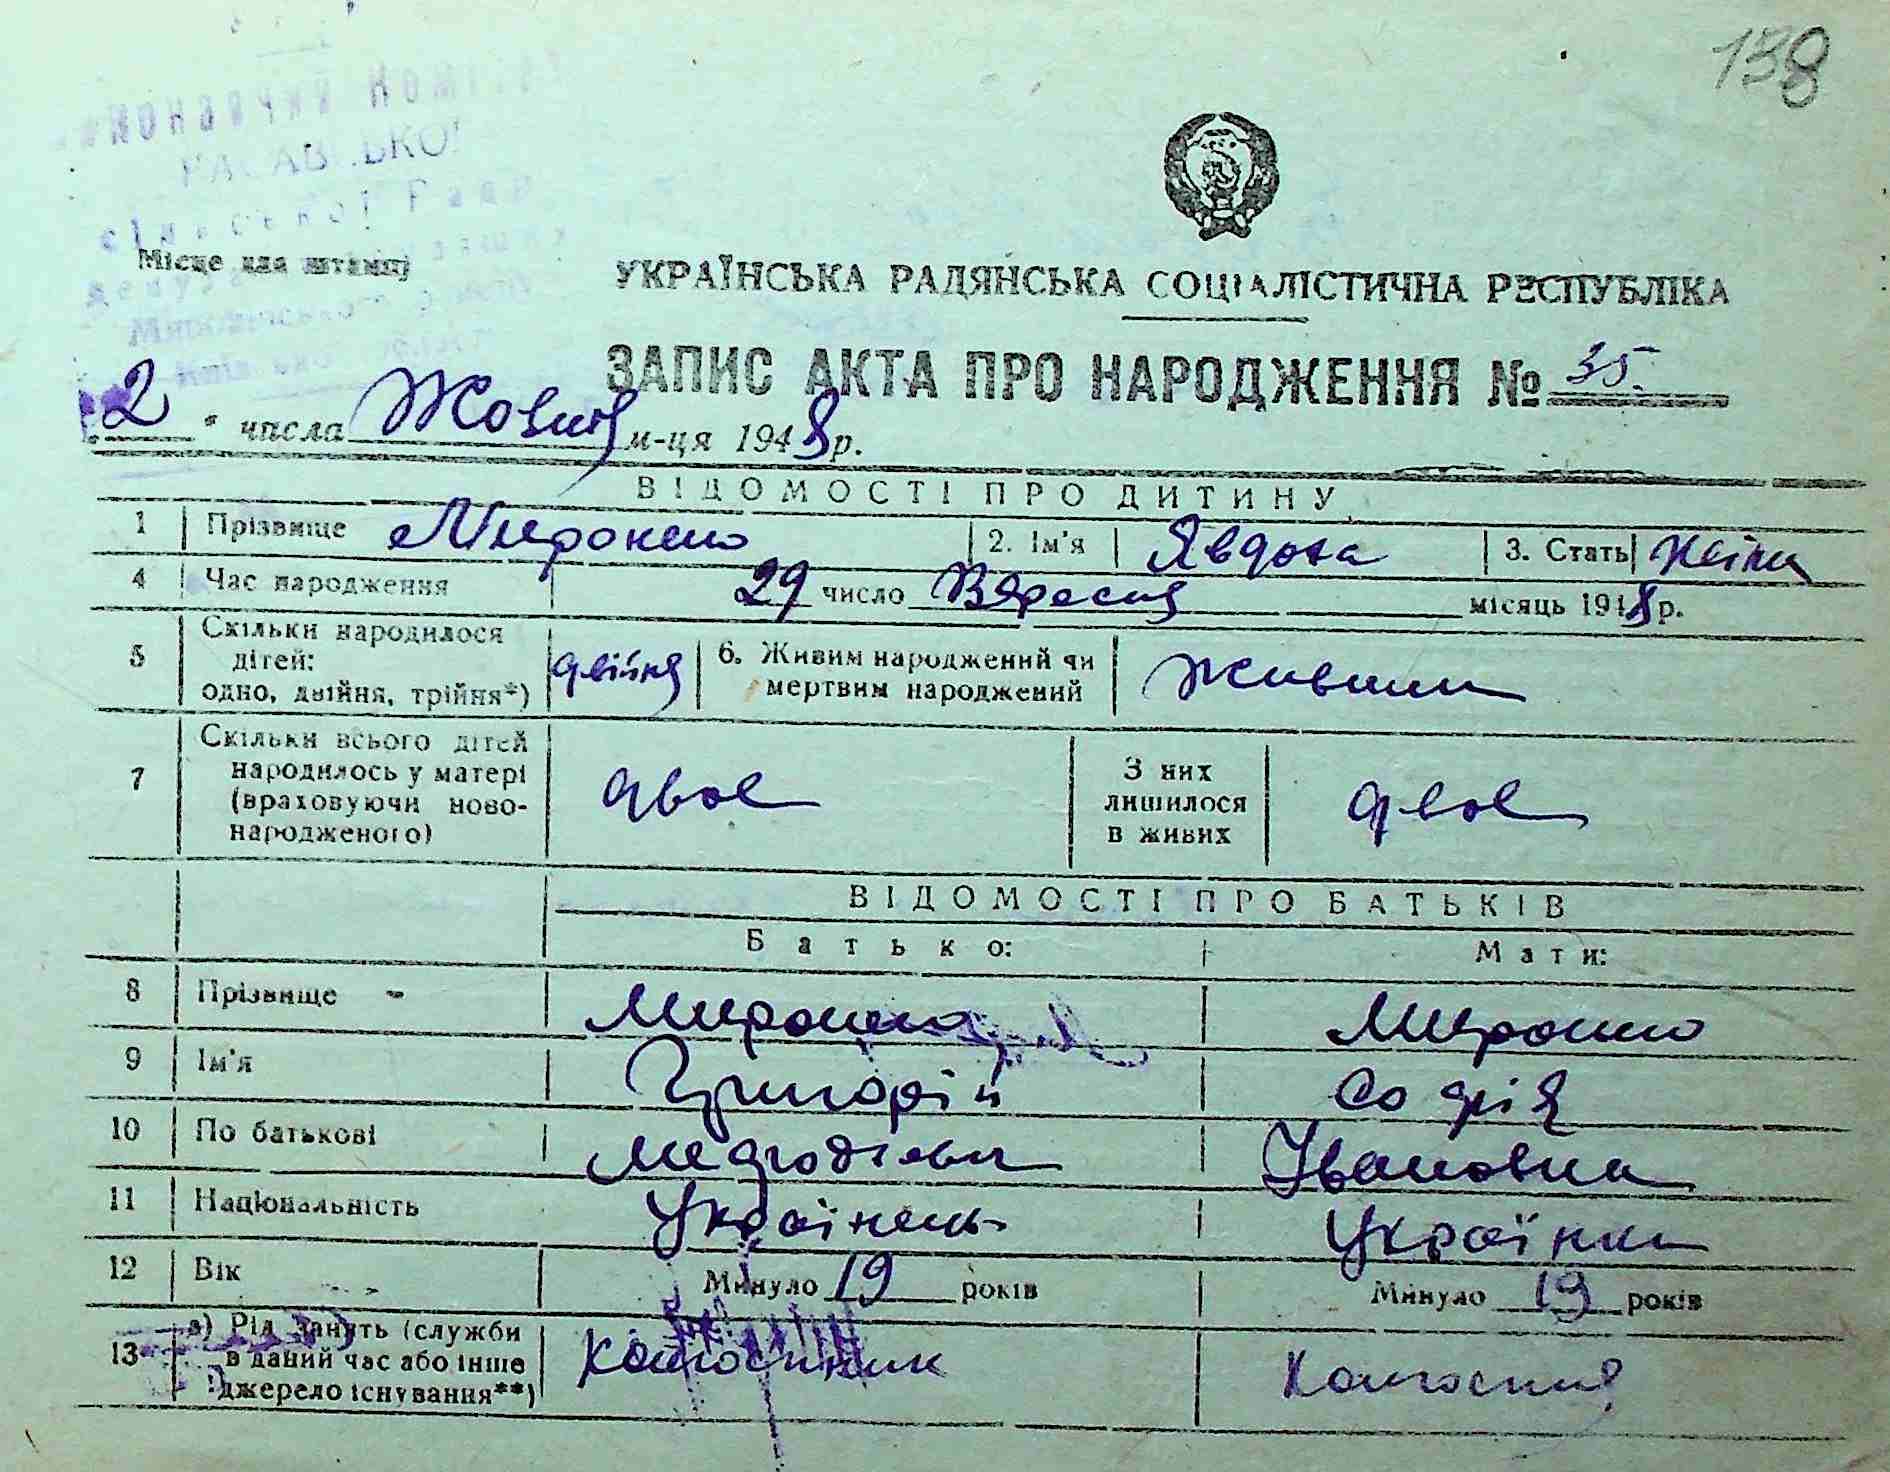 138
сільської Рад
Місце для штампу
УКРАЇНСЬКА РАДЯНСЬКА СОЦІАЛІСТИЧНА РЕСПУБЛІКА
ЗАПИС АКТА ПРО НАРОДЖЕННЯ № 35.
"2" числа Жовтня м-ця 1948 р.
ВІДОМОСТІ ПРО ДИТИНУ
1 Прізвище Миронено 2. Ім'я Явдоха 3. Стать Жіноч
4 Час народження 29 число Вересня місяць 1948 р.
5 Скільки народилося дітей: одно, двійня, трійня*) двійня 6. Живим народжений чи мертвим народжений Живим
7 Скільки всього дітей народилось у матері (враховуючи новонародженого) двое З них лишилося в живих двое
ВІДОМОСТІ ПРО БАТЬКІВ
Батько: Мати:
8 Прізвище
9 Ім'я Григорій Софія
10 По батькові Мефодіевич Івановна
11 Національність Українець Українка
12 Вік Минуло 19 років Минуло 19 років
13 а) Рід занять (служби в даний час або інше джерело існування**) Колгоспник Колгоспниця